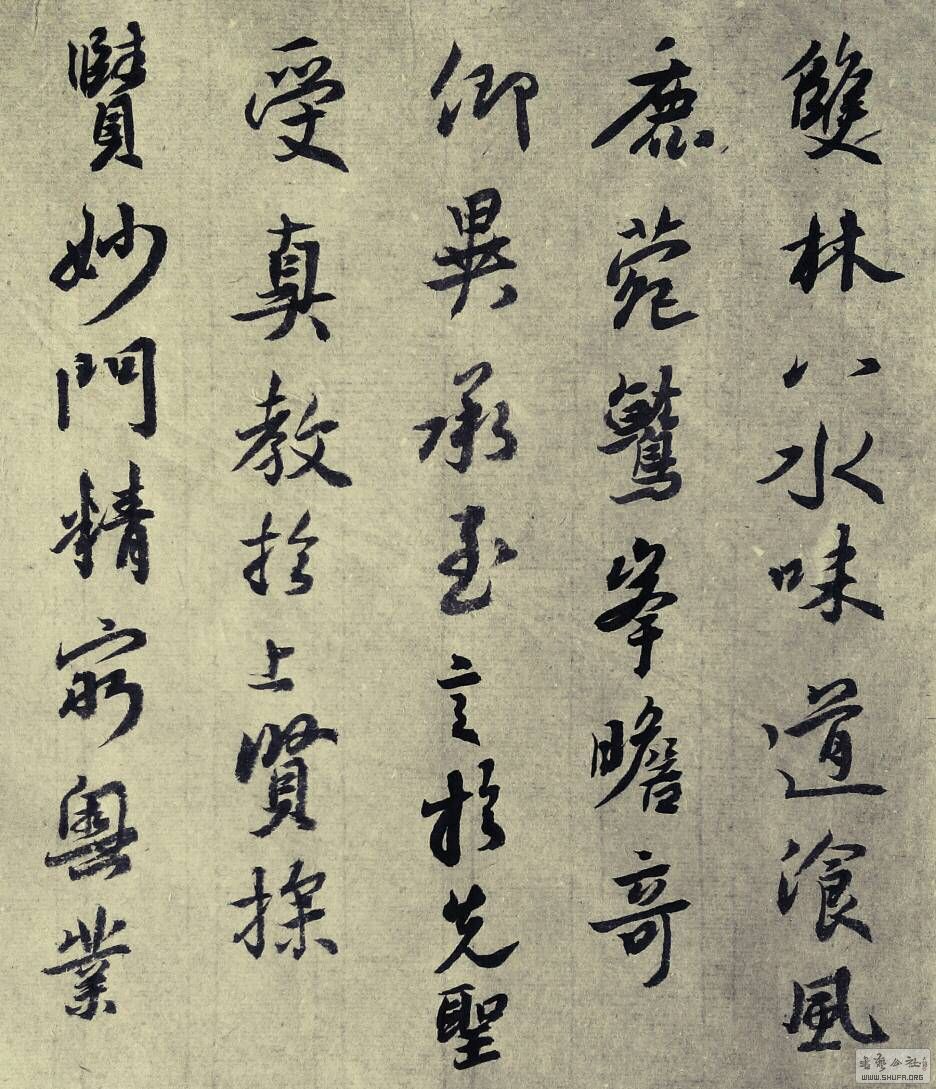 雙林八水味道湌風
鹿菀鷲峯瞻奇
仰異承至言於先聖
受真教於上賢探
賾妙門精窮奧業
書藝公社
WWW.SHUFA.ORG